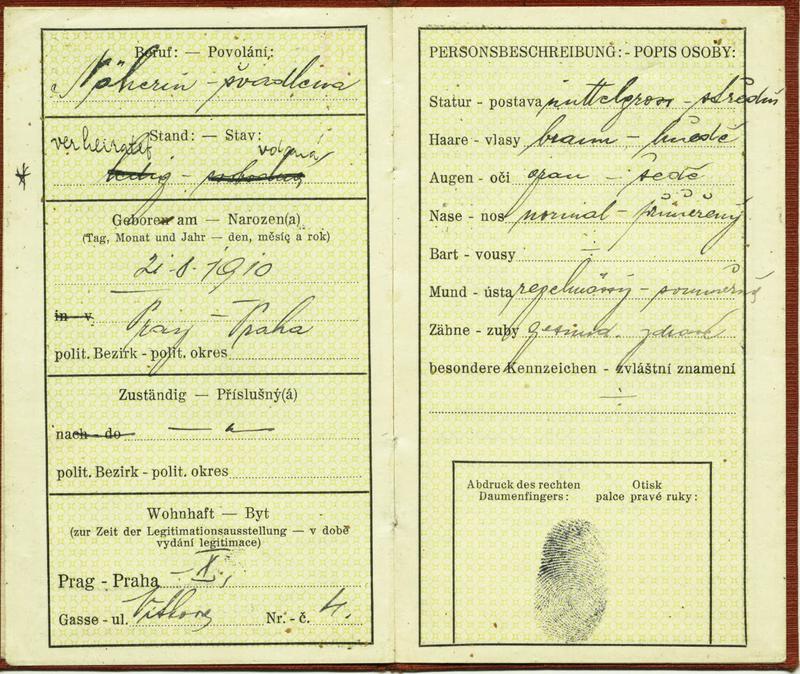 Beruf: — Povolání:
Näherin – švadlena
Stand: — Stav:
verheiratet vdaná
ledig – svobodná
*
Geboren am — Narozen(a)
(Tag, Monat und Jahr — den, měsíc a rok)
1910
in – v Prag – Praha
polit. Bezirk - polit. okres
Zuständig — Příslušný(á)
nach – do — " —
polit. Bezirk - polit. okres
Wohnhaft — Byt
(zur Zeit der Legitimationsausstellung — v době
vydání legitimace)
Prag - Praha X,
Gasse - ul. Nr. - č. 4.
PERSONSBESCHREIBUNG: - POPIS OSOBY:
Statur - postava mittelgross – střední
Haare - vlasy braun – hnědé
Augen - oči grau – šedé
Nase - nos normal – přiměřený
Bart - vousy ÷
Mund - ústa regelmässig – souměrná
Zähne - zuby gesund. zdravé
besondere Kennzeichen - zvláštní znamení
÷
Abdruck des rechten Daumenfingers:
Otisk palce pravé ruky: